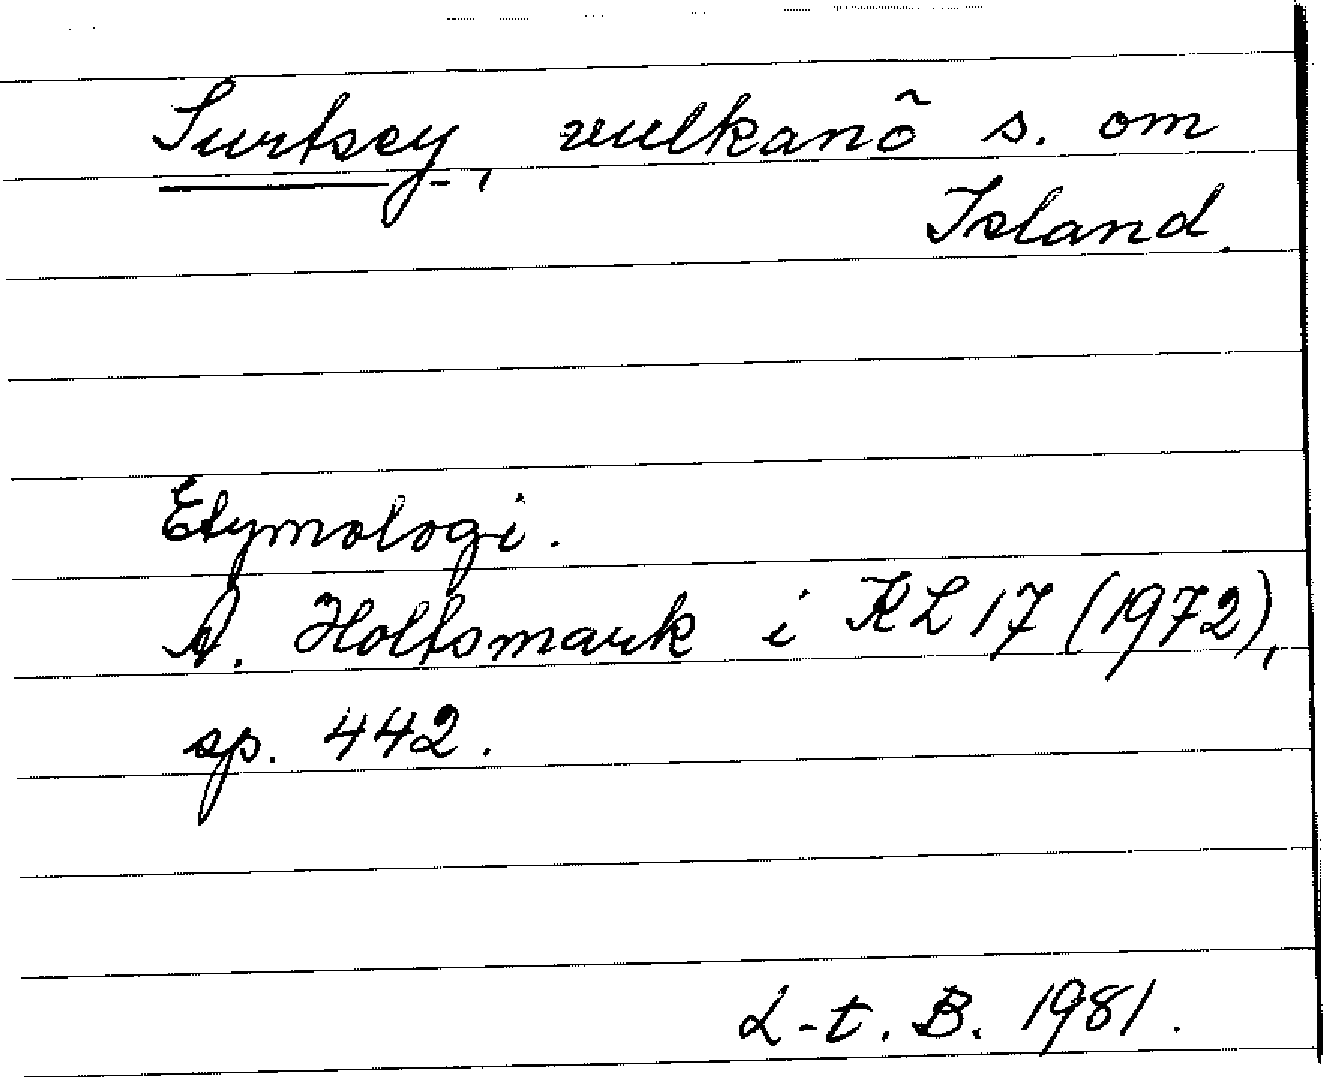 Surtsey, vulkanö s. om
Island.
Etymologi.
A. Holtsmark i KL 17 (1972),
sp. 442.
L-t. B. 1981.